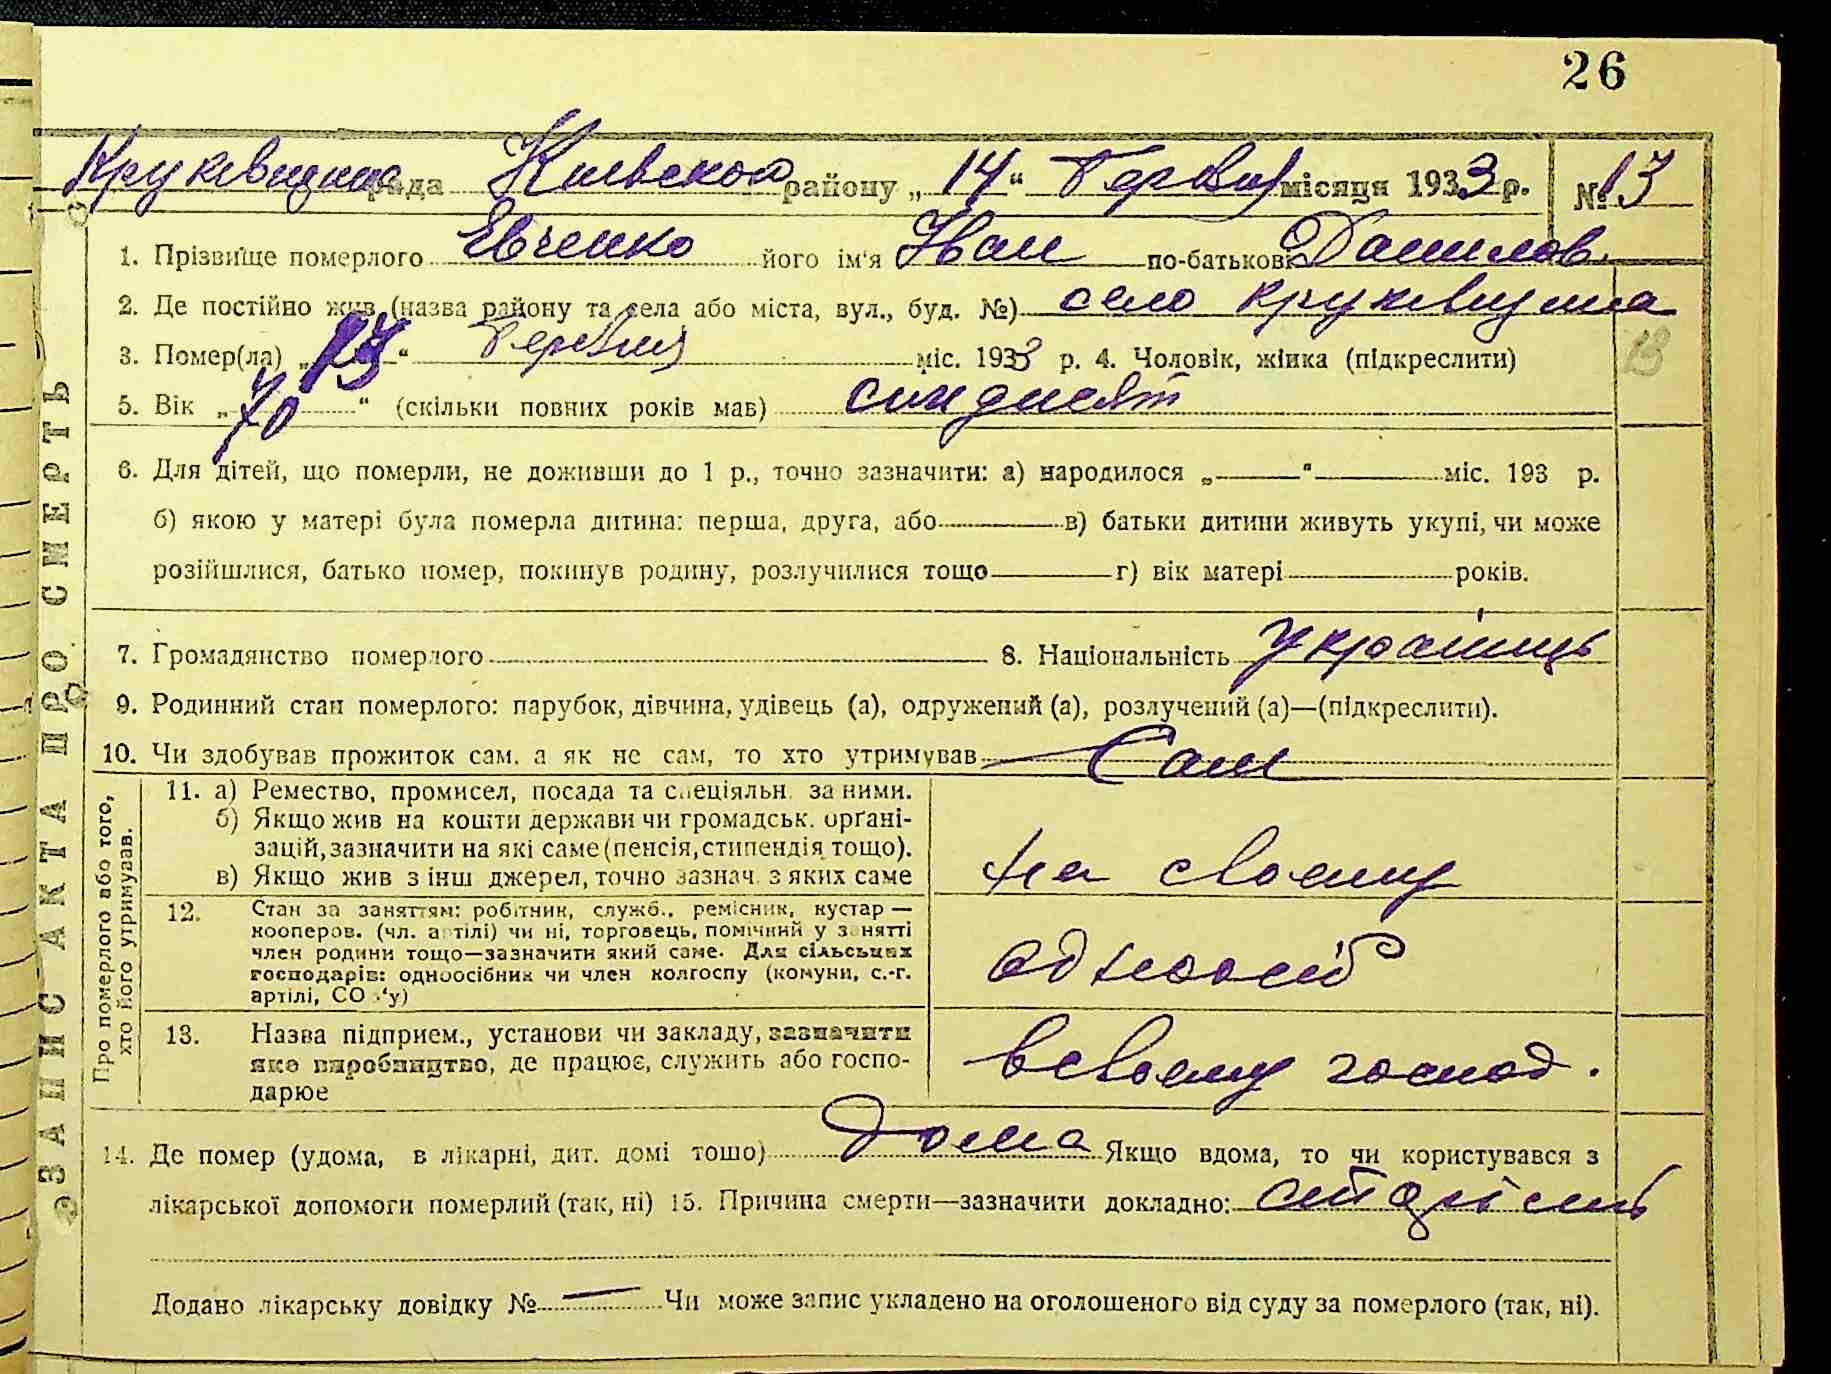 26
Круківщинс рада Київської району „14“ Червня місяця 1933 р. № 13
1. Прізвище померлого Євченко його ім'я Иван по-батькові Данилов.
2. Де постійно жив (назва району та села або міста, вул., буд. №) село Круківщина
3. Помер(ла) „13“ Червня міс. 1933 р. 4. Чоловік, жінка (підкреслити)
13
5. Вік „70“ (скільки повних років мав) сімдисят
6. Для дітей, що померли, не доживши до 1 р., точно зазначити: а) народилося „ “ міс. 193 р.
б) якою у матері була померла дитина: перша, друга, або в) батьки дитини живуть укупі, чи може
розійшлися, батько помер, покинув родину, розлучилися тощо г) вік матері років.
7. Громадянство померлого 8. Національність Українць
9. Родинний стан померлого: парубок, дівчина, удівець (а), одружений (а), розлучений (а)—(підкреслити).
10. Чи здобував прожиток сам, а як не сам, то хто утримував Сам
Про померлого або того, хто його утримував.
11. а) Ремество, промисел, посада та спеціяльн. за ними.
б) Якщо жив на кошти держави чи громадськ. орґані-
зацій, зазначити на які саме (пенсія, стипендія тощо).
в) Якщо жив з інш джерел, точно зазнач. з яких саме
на своему
12. Стан за заняттям: робітник, служб., ремісник, кустар —
кооперов. (чл. артілі) чи ні, торговець, помічний у занятті
член родини тощо—зазначити який саме. Для сільських
господарів: одноосібник чи член колгоспу (комуни, с.-г.
артілі, СО у)
одноосіб
13. Назва підприєм., установи чи закладу, зазначити
яке виробництво, де працює, служить або госпо-
дарює
всвоему господ.
14. Де помер (удома, в лікарні, дит. домі тощо) дома Якщо вдома, то чи користувався з
лікарської допомоги померлий (так, ні) 15. Причина смерти—зазначити докладно: старість
Додано лікарську довідку № — Чи може запис укладено на оголошеного від суду за померлого (так, ні).
ЗАПИС АКТА ПРО СМЕРТЬ